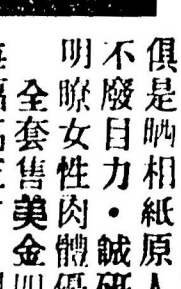 俱是晒相紙原人
不廢目力・誠研
明瞭女性肉體優
全套售美金四